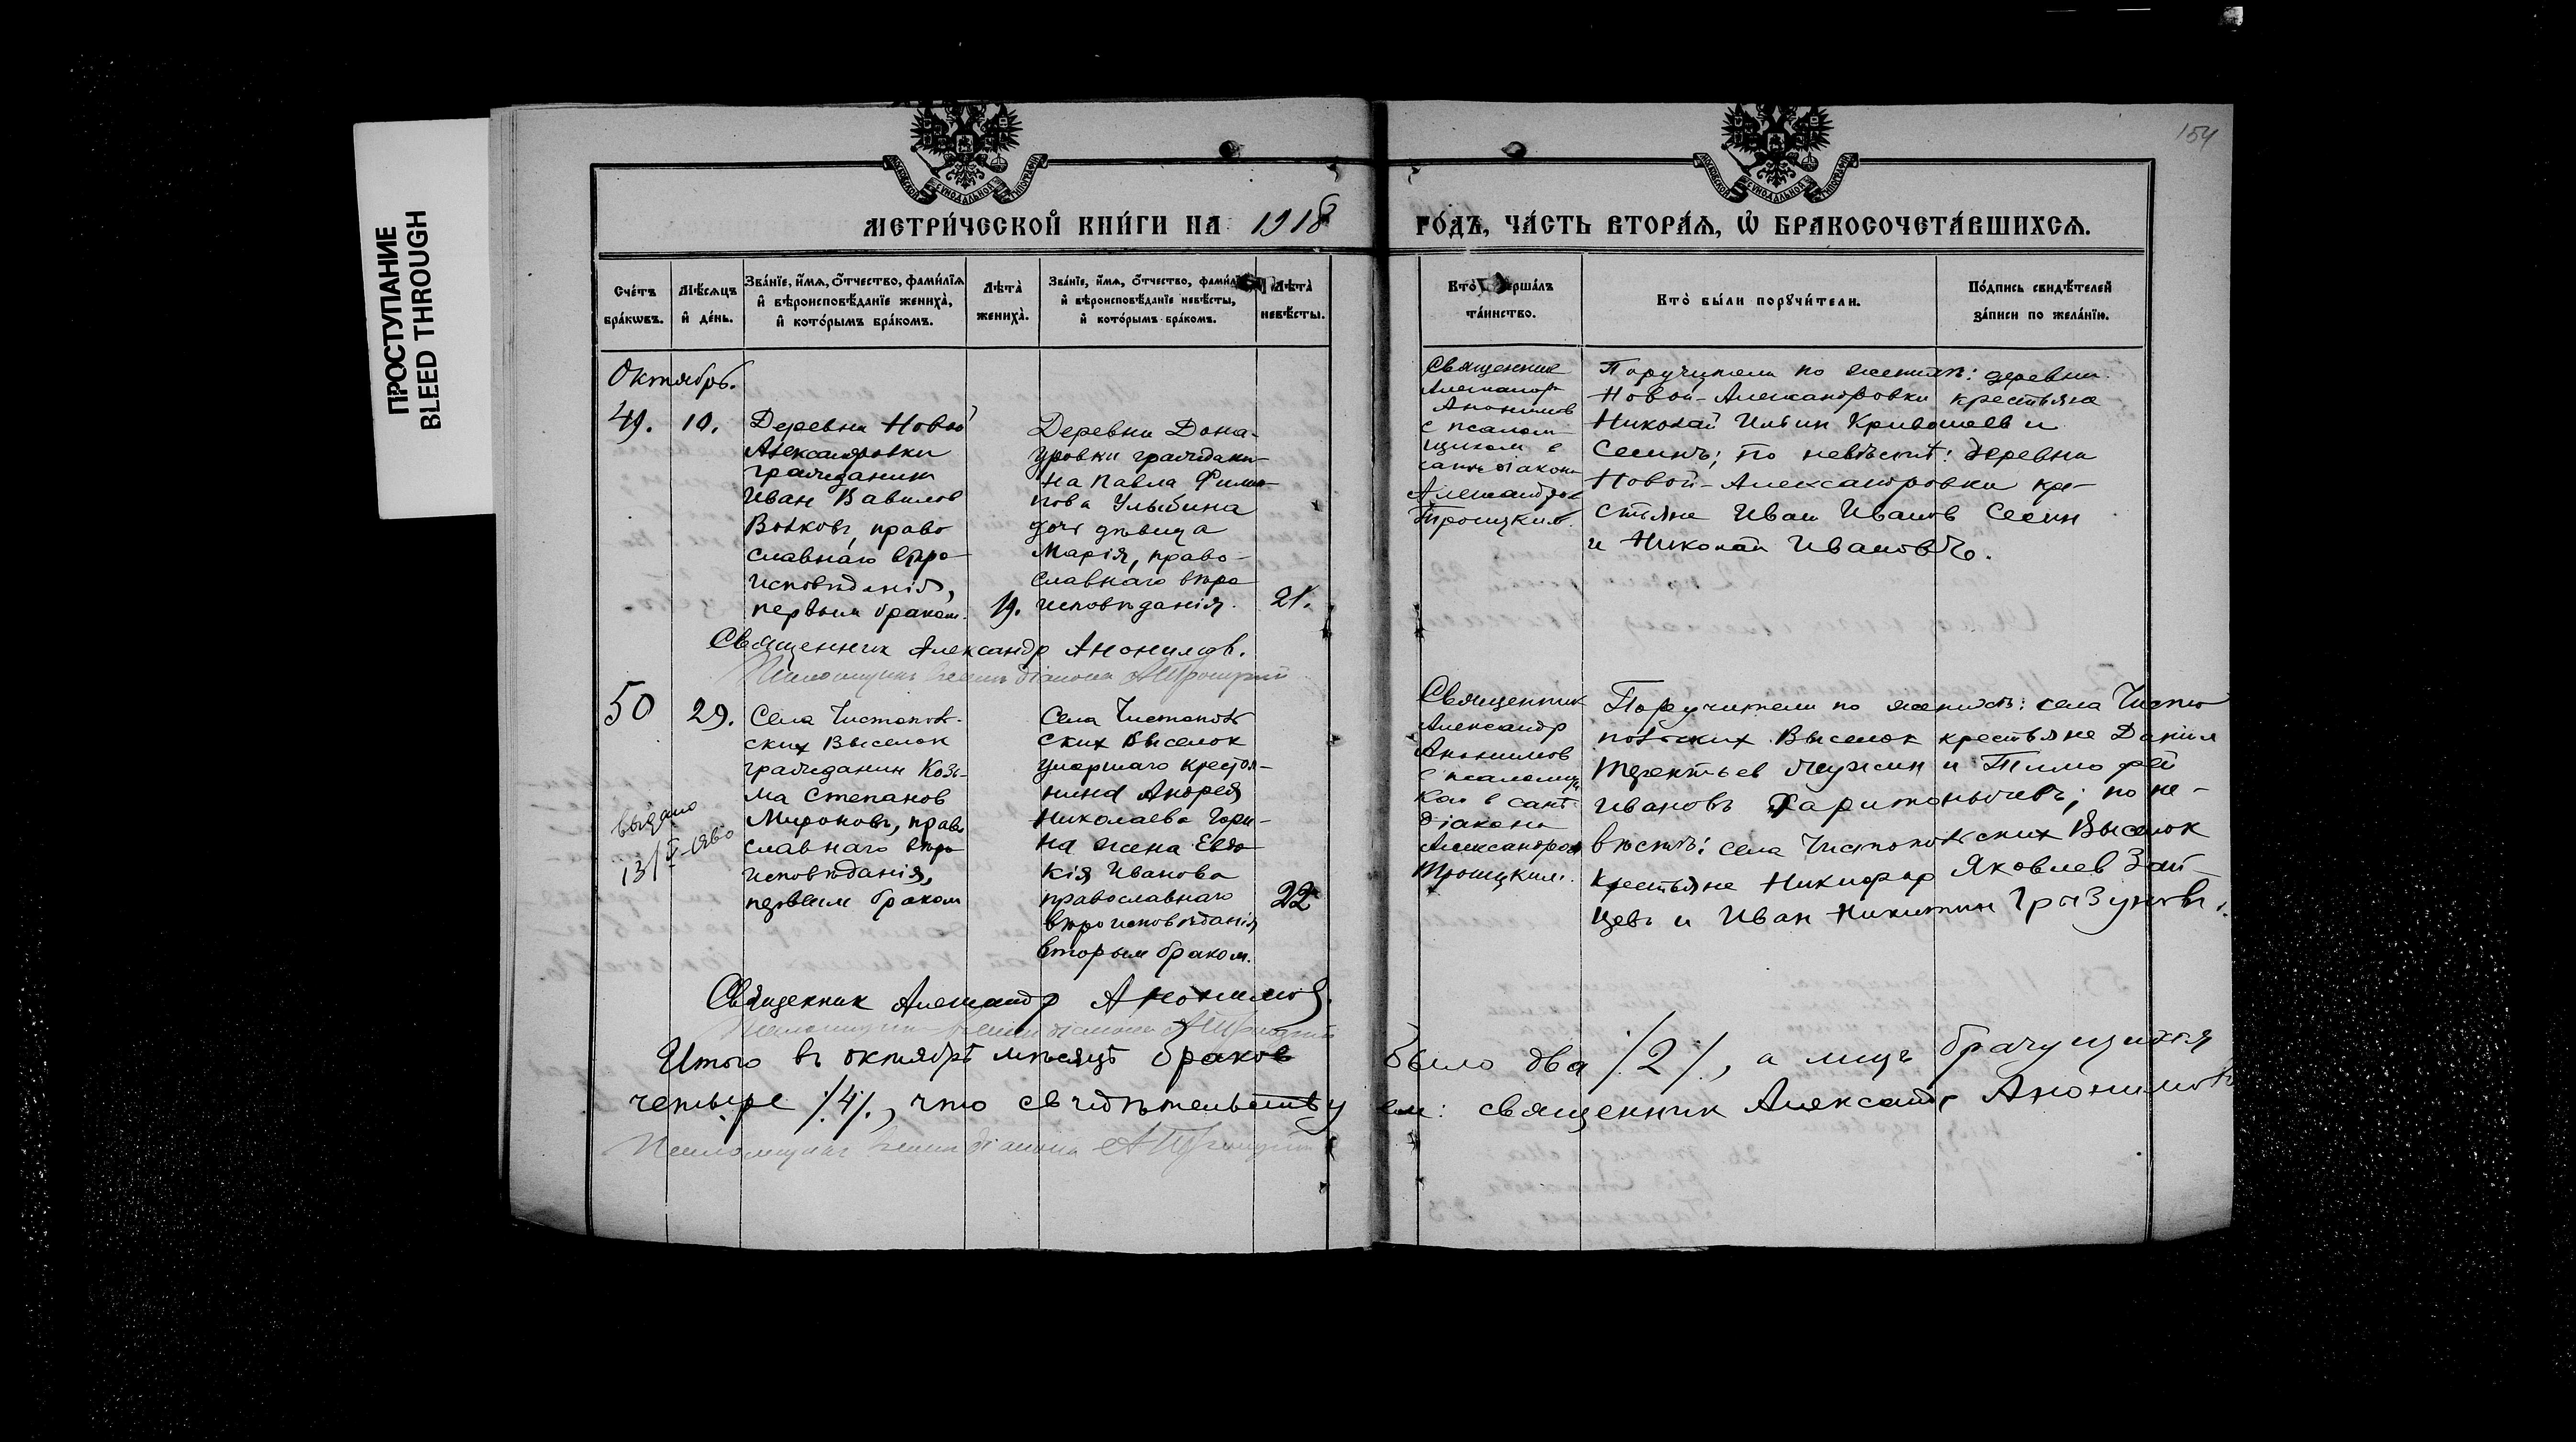 154
ПРОСТУПАНИЕ
BLEED THROUGH
МЕТРИ́ЧЕСКОЙ КНИ́ГИ НА 1918
РО́ДЪ, ЧА́СТЬ ВТОРА́Я, Ѽ БРАКОСОЧЕТА́ВШИХСЯ.
Сче́тъ бра́кωвъ.
Мѣ́сяцъ и҆ де́нь.
Зва́нїе, и҆́мя, ѻ҆́тчество, фами́лїя и҆ вѣроисповѣ́данїе жениха̀, и҆ кото́рымъ бра́комъ.
Лѣ́та жениха̀.
Зва́нїе, и҆́мя, ѻ҆́тчество, и҆ вѣроисповѣ́данїе невѣ́сты, и҆ кото́рымъ бра́комъ.
Лѣ́та невѣ́сты.
Кто̀ таи́нство.
Кто̀ бы́ли порꙋчи́тели.
По́дпись свидѣ́телей за́писи по жела́нїю.
Октябрь.
49.
10.
Деревни Новой
Александровки
гражданин
Иван Вавилов
Волковъ, право
славнаго вѣро-
исповѣданія,
первым браком.
19.
Деревни Дона-
уровки граждани-
на Павла Филип-
пова Улыбина
дочь дѣвица
Марія, право-
славнаго вѣро
исповѣданія.
21.
Священник
Александр
Анонимов
с псалом-
щиком в
санѣ діакона
Александром
Троицким.
Поручители по женихѣ: деревни
Новой-Александровки крестьяне
Николай Ильин и
Сесинъ; по невѣстѣ: деревни
Новой-Александровки кре-
стьяне Иван Иванов Сесин
и Николай Ивановъ.
Священник Александр Анонимов.
Псаломщикъ діакона А Троицкий
50
29.
Села Чистопол-
ских Выселок
гражданин Козь-
ма Степанов
Миронов, право
славнаго вѣро
исповѣданія,
первым браком
выдано
13/X-1960
Села Чистопол
ских Выселок
умершаго крестья-
нина Андрея
Николаева Гори-
на жена Евдо-
кія Иванова
православнаго
вѣроисповѣданія
вторым браком.
22
Священник
Александр
Анонимов
с псаломщи
ком в санѣ
діакона
Александром
Троицким.
Поручители по женихѣ: села Чисто
польских Выселок крестьяне Данiил
Терентьев и Тимофей
Ивановъ; по не-
вѣстѣ: села Чистопольских Выселок
крестьяне Никифор Яковлев Зай-
цевъ и Иван Никитин Грызуновъ.
Священник Александр Анонимов.
Псаломщикъ діакона А Троицкий
Итого въ октябрѣ мѣсяцѣ браков было два /2/, а лицъ брачущихся
четыре /4/, что свидѣтельствуем: священник Александр Анонимовъ
Псаломщикъ діакона А Троицкий